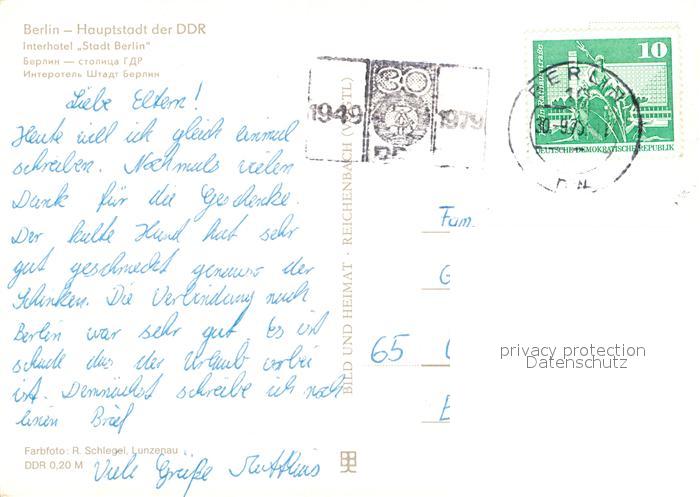 Berlin – Hauptstadt der DDR
Interhotel „Stadt Berlin"
Берлин — столица ГДР
Интеротель Штадт Берлин
Liebe Eltern!
Heute will ich gleich einmal
schreiben. Nochmals vielen
Dank für die Geschenke.
Der kalte Hund hat sehr
gut geschmeckt genauso der
Schinken. Die Verbindung nach
Berlin war sehr gut. Es ist
schade das der Urlaub vorbei
ist. Demnächst schreibe ich noch
einen Brief
Viele Grüße Matthias
Farbfoto: R. Schlegel, Lunzenau
DDR 0,20 M
BILD UND HEIMAT · REICHENBACH (VOGTL)
1949 30 1979
DDR
10
BERLIN
DEUTSCHE DEMOKRATISCHE REPUBLIK
Fam.
G
65
privacy protection
Datenschutz